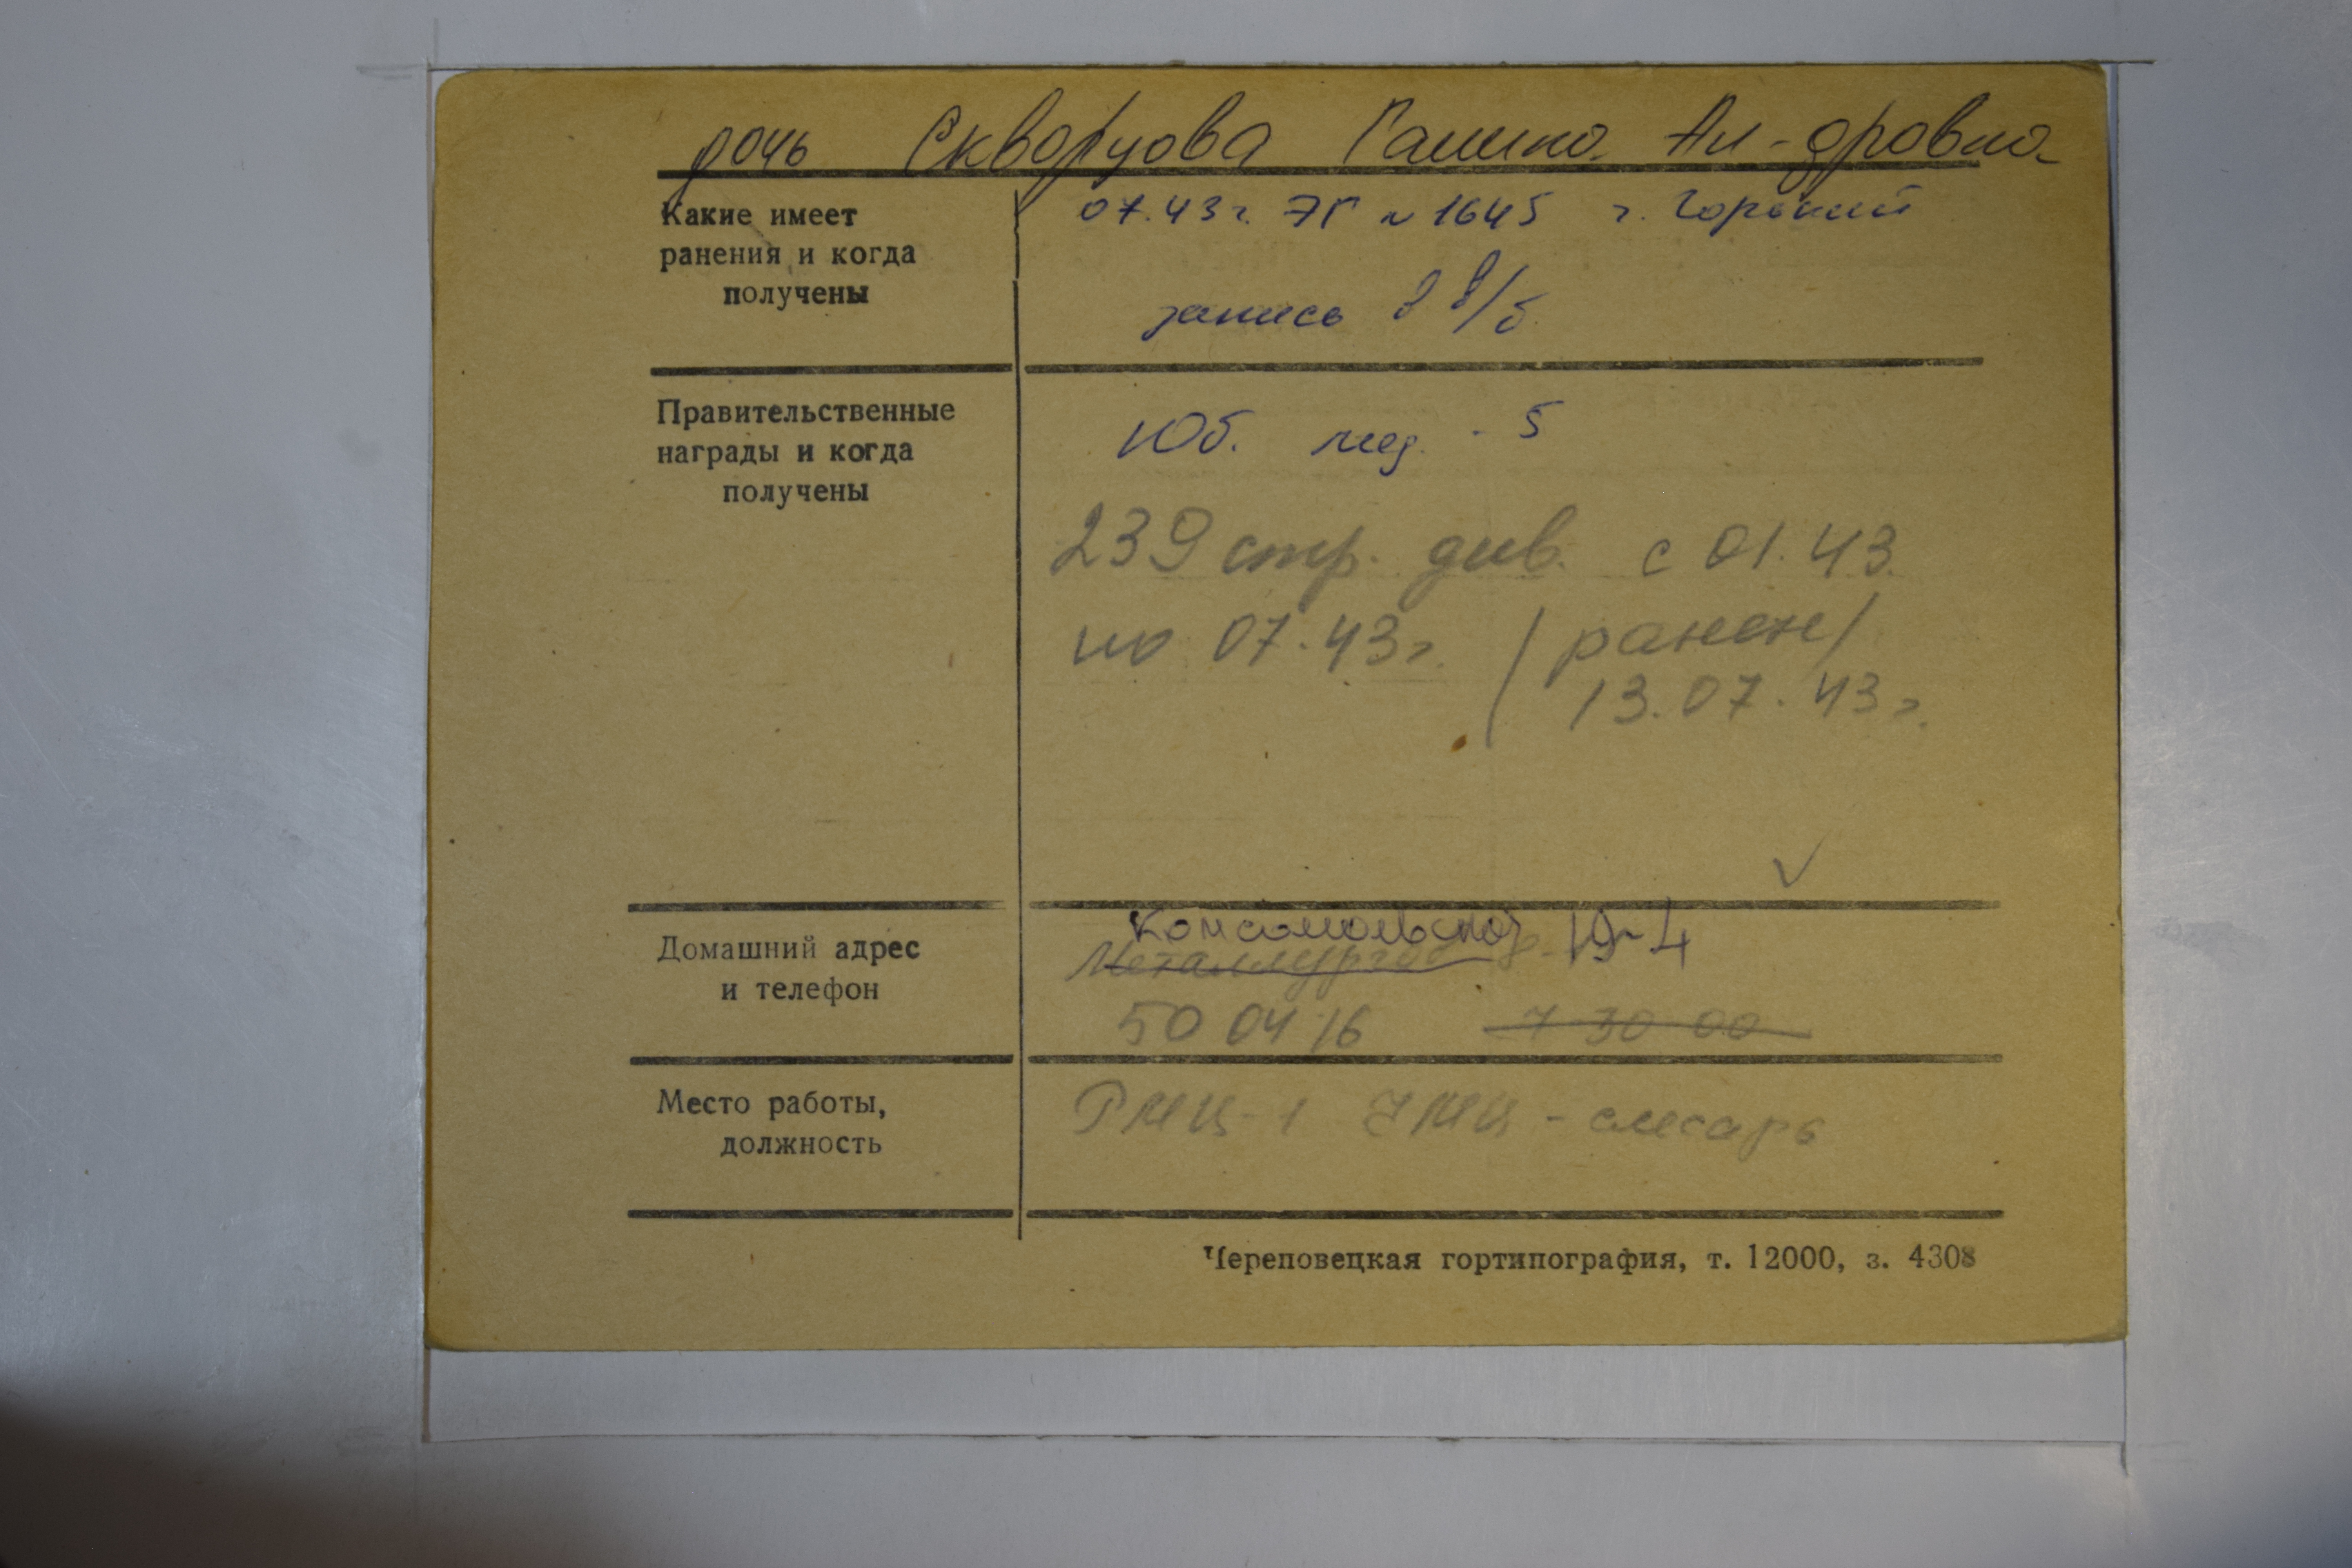 дочь Скворцова Галина Ал-дровна
Какие имеет
ранения и когда
получены
07.43г. ЭГ № 1645 г. Горький
запись в в/б
Правительственные
награды и когда
получены
Юб. мед. - 5
239 стр. див. с 01.43.
по 07.43г. /ранен/
13.07.43г.
Домашний адрес
и телефон
Комсомольская 19-4
Металлургов
50 04 16 7 30 00
Место работы,
должность
РМЦ-1 ЧМЦ - слесарь
Череповецкая гортипография, т. 12000, з. 4308